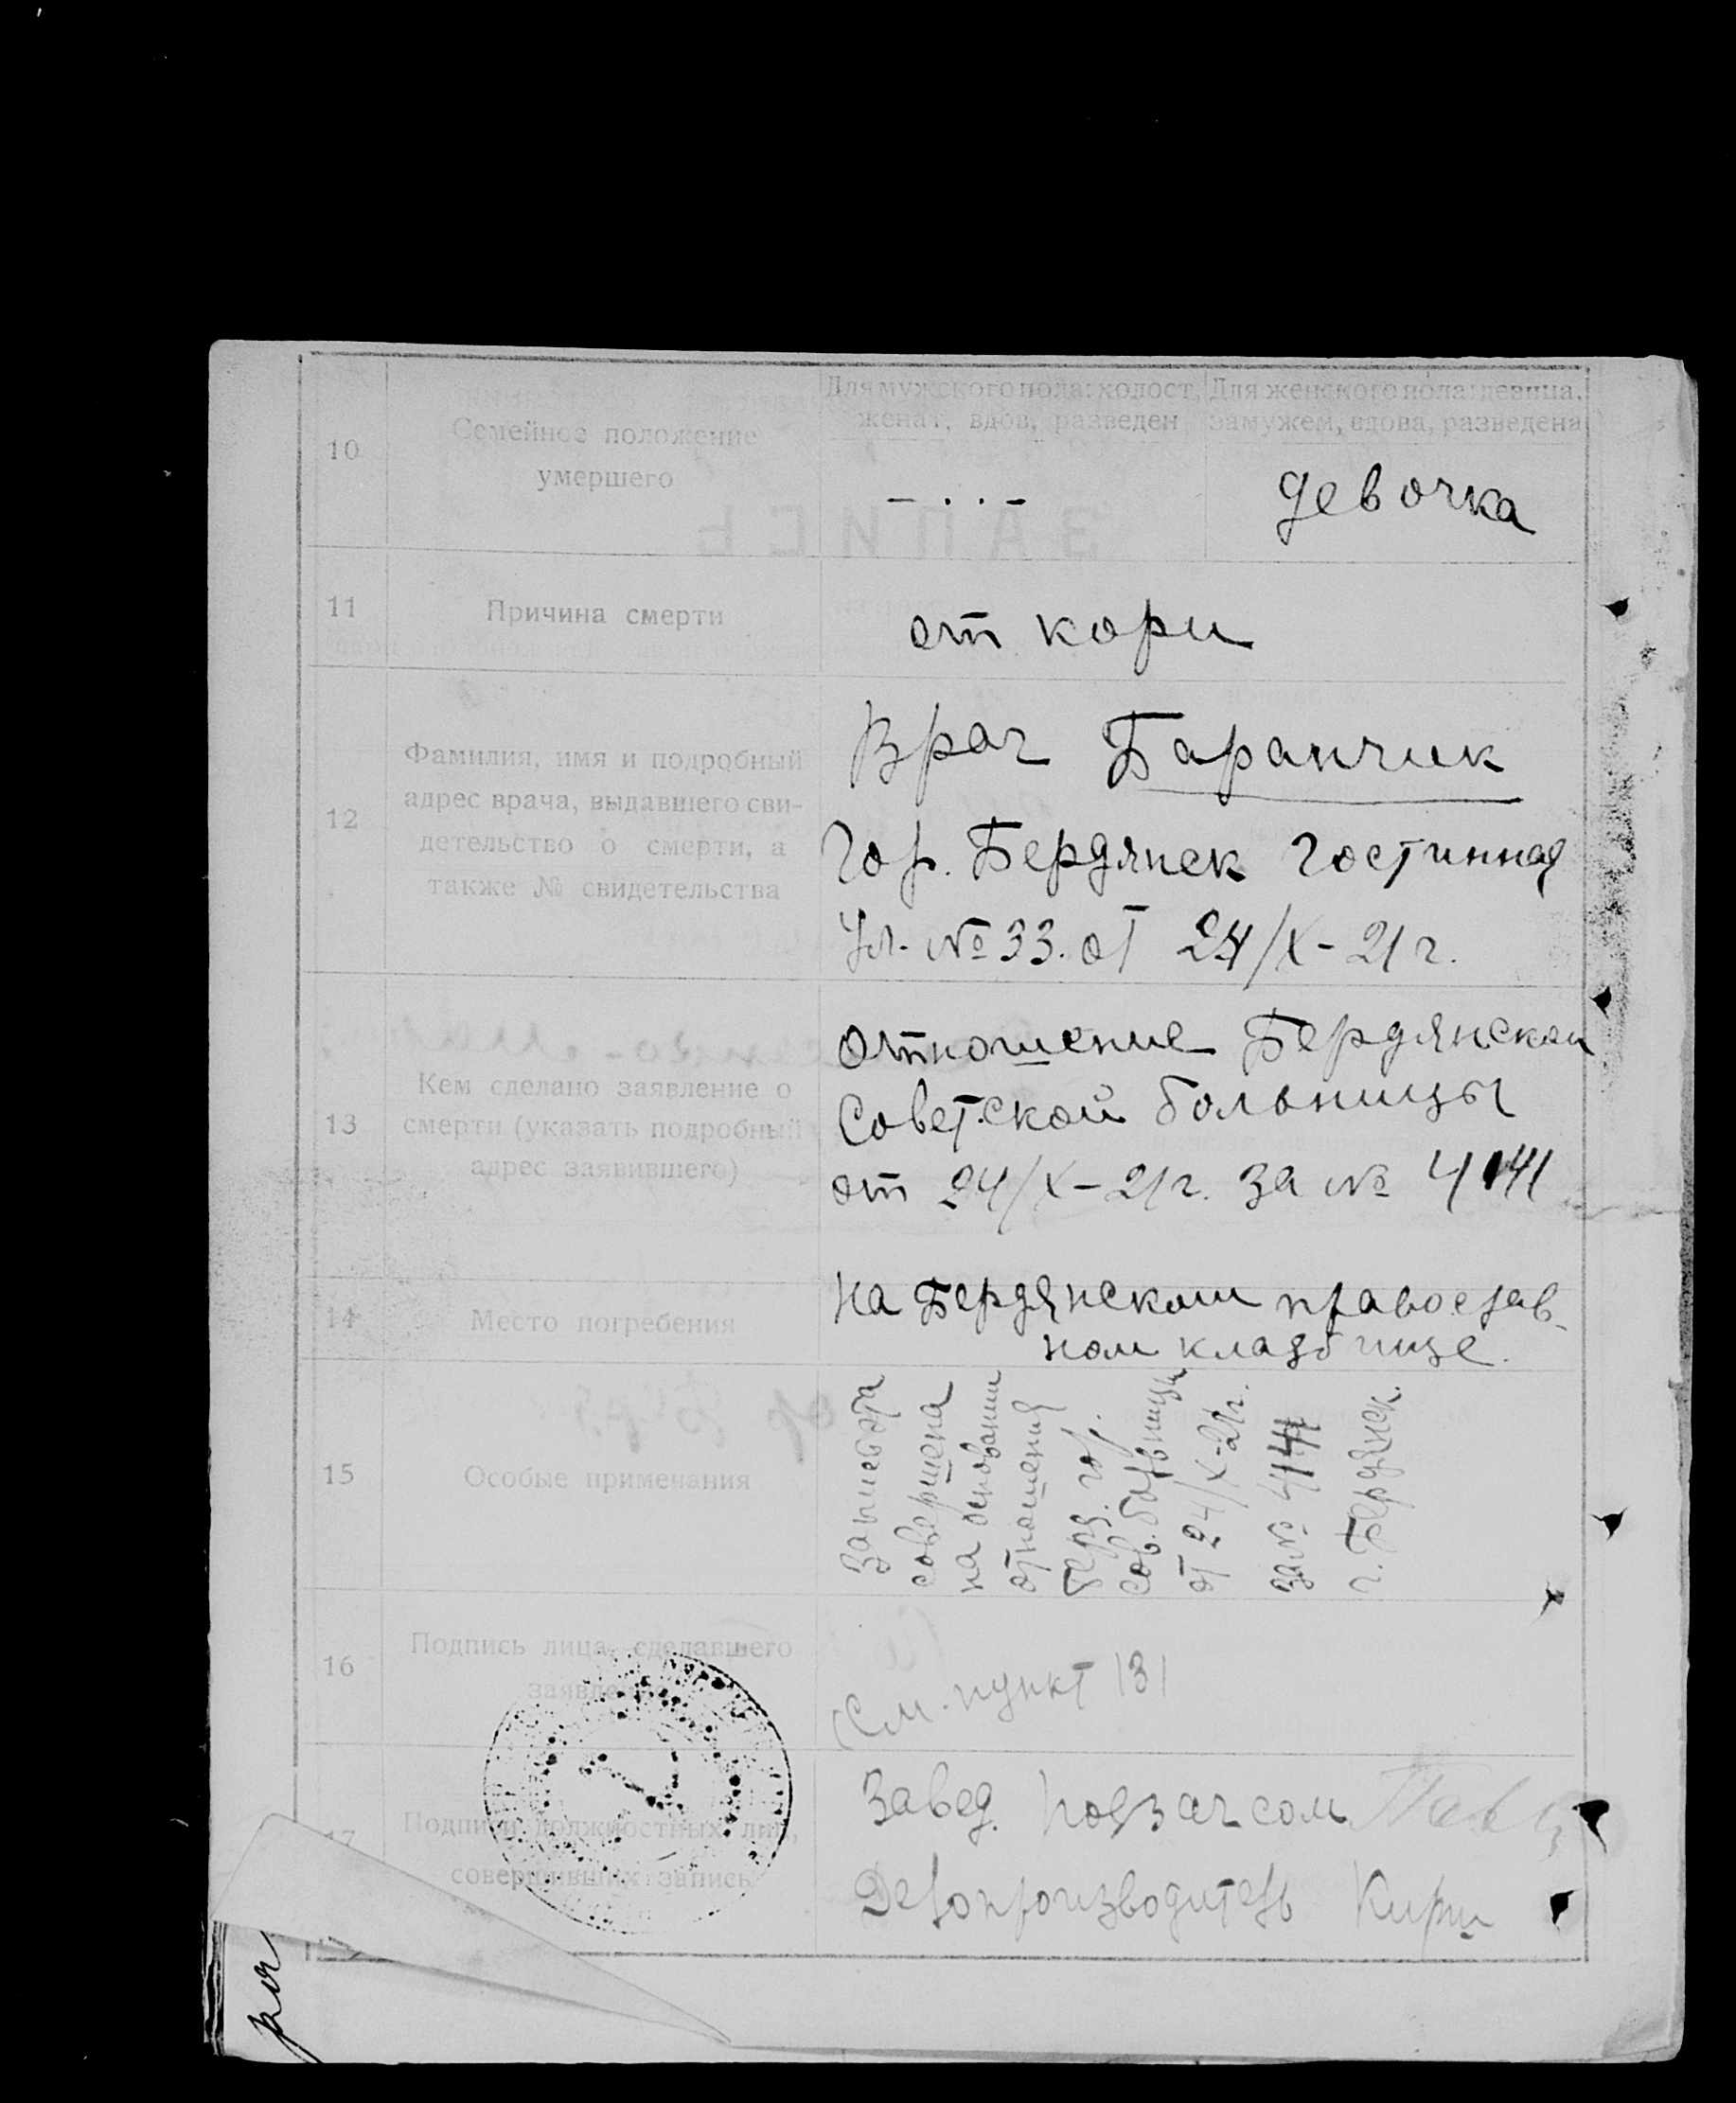 10
Семейное положение
умершего
Для мужского пола: холост,
женат, вдов, разведен
Для женского пола: девица,
замужем, вдова, разведена
— . . —
девочка
11
Причина смерти
от кори
12
Фамилия, имя и подробный
адрес врача, выдавшего сви-
детельство о смерти, а
также № свидетельства
Врач Баранчик
Гор. Бердянск Гостинная
ул. № 33. от 24/X – 21 г.
13
Кем сделано заявление о
смерти (указать подробный
адрес заявившего)
Отношение Бердянской
Советской больницы
от 24/X – 21 г. за № 4141
14
Место погребения
На Бердянском православ-
ном кладбище.
15
Особые примечания
Запись эта
совершена
на основании
отношения
Берд. гор.
сов. больницы
от 24/X-21г.
за № 4141
г. Бердянск.
16
Подпись лица, сделавшего
заявление
(См. пункт 13)
17
Подписи должностных лиц,
совершивших запись
Завед. Подзагсом
Делопроизводитель
ЗАПИСЬ